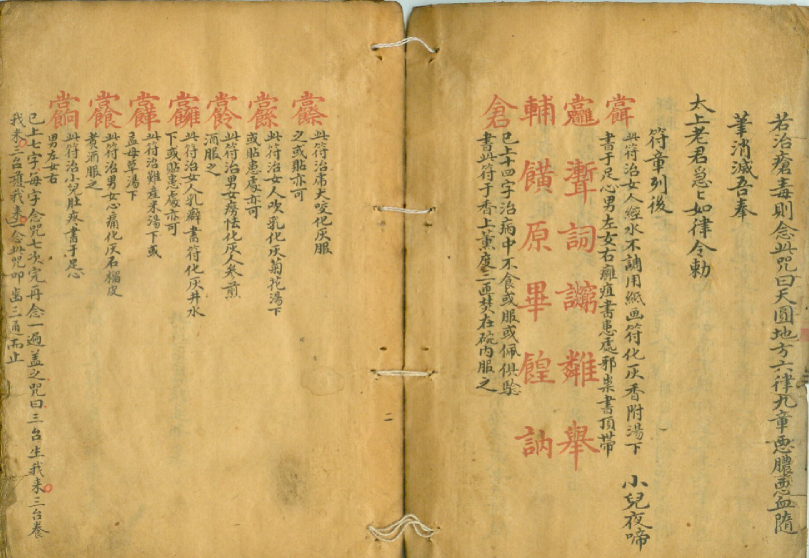 若治瘡毒則念此咒曰天圓地方六律九章惡膿惡血隨
筆消滅吾奉
太上老君急匕如律令勅
符章列後
此符治女人經水不調用紙画符化灰香附湯下 小兒夜啼
書于足心男左女右癰疽書患處邪祟書頂帶
詞 舉
輔饙原畢餭訥
倉
已上十四字治病中不食或服或佩俱驗
書此符于香上薰度三匝焚在碗内服之
此符治虎犬咬化灰服
之或貼亦可
此符治女人吹乳化灰菊花湯下
或貼患處亦可
此符治男女瘆怯化灰人參煎
酒服之
此符治女人乳癖書符化灰井水
下或貼患處亦可
此符治難産米湯下或
益母草湯下
此符治男女心痛化灰石榴皮
煮酒服之
此符治小兒肚疼書于足心
男左女右
已上七字每字念咒七次完再念一過蓋之咒曰三台生我來三台養
我來三台護我來念此咒叩齒三通而止